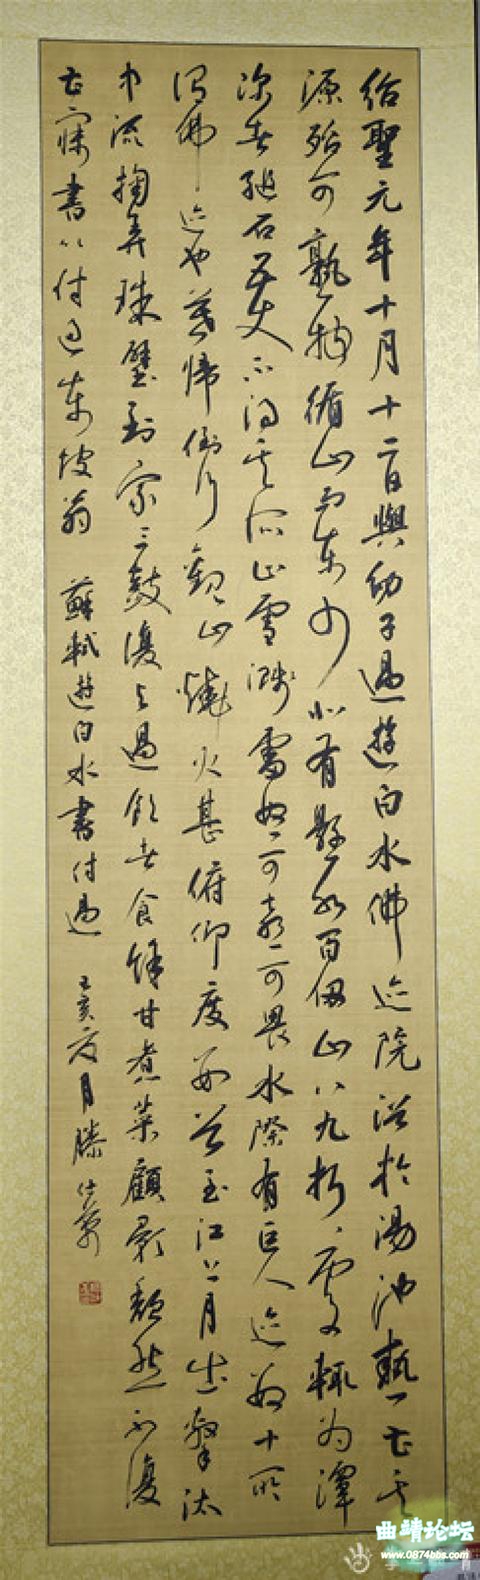 紹聖元年十月十二日與幼子過遊白水佛迹院浴於湯池熱甚其
源殆可熟物循山而東少北有懸水百仞山八九折折處輒為潭
深者縋石五丈不得其所止雪濺雷怒可喜可畏水際有巨人迹數十所
謂佛迹也暮歸倒行觀山燒火甚俯仰度數谷至江山月出擊汰
中流掬弄珠璧到家二鼓復與過飲酒食餘甘煮菜顧影頹然不復
甚寐書以付過東坡翁 蘇軾遊白水書付過 己亥夏月滕
曲靖论坛
www.0874bbs.com